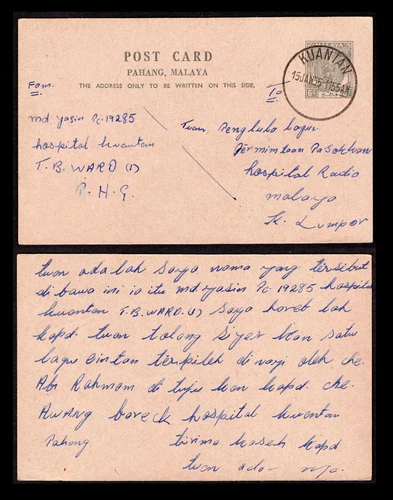 POST CARD
PAHANG, MALAYA
THE ADDRESS ONLY TO BE WRITTEN ON THIS SIDE.
KUANTAN
15 JAN 55
From.
To
md yasin Pc. 19285
hospital kwantan
T.B. WARD (1)
P.H.G.
Tuan Penghulu lagu
Permintaan
hospital Radio
malaya
K. Lumpor
tuan ada lah saya nama yang tersebut
di bawa ini ia itu md. yasin Pc. 19285 hospital
kwantan T.B. WARD. (1) saya haret lah
kapd. tuan tolang siyer kan satu
lagu bintan terpileh di nayi oleh che.
Abi Rahmam di tuju kan kapd. che.
Awang hospital kwantan
Pahang
tirima kaseh kapd.
tuan ada